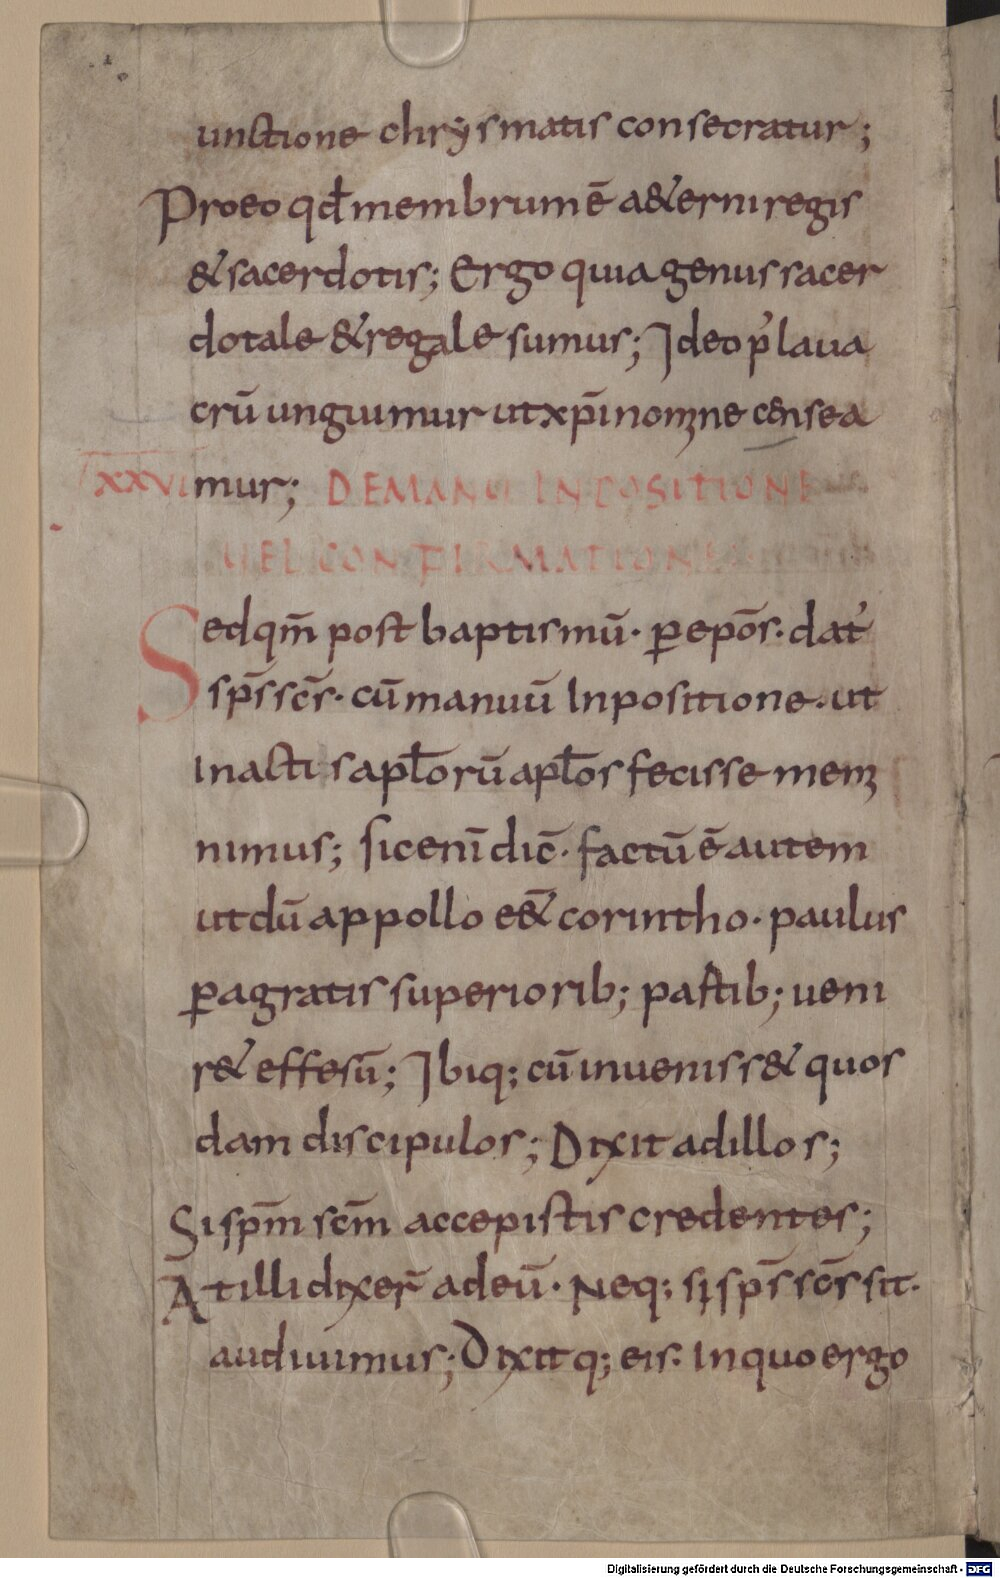 unctione chrysmatis consecratur;
Proeo qđ membrum ē aeterni regis
& sacerdotis; Ergo quia genus sacer
dotale & regale sumus; Ideo p' laua
crū unguimur ut xp̄i nomine censea
XXVI mur; DE MANU INPOSITIONE
UEL CONFIRMATIONE
Sed qm̄ post baptismū· ꝑ epōs· dat'
sp̄s sc̄s· cū manuū Inpositione· ut
In actis apl̄orū apl̄os fecisse memi
nimus; sic enī dic̄· factū ē autem
ut dū appollo eēt corintho· paulus
ꝑagratis superiorib; partib; ueni
r& effesū; Ibiq; cū inueniss& quos
dam discipulos; Dixit ad illos;
Si sp̄m sc̄m accepistis credentes;
At illi dixer̄ ad eū· Neq; si sp̄s sc̄s sit·
audiuimus; Dixitq; eis· In quo ergo
Digitalisierung gefördert durch die Deutsche Forschungsgemeinschaft - DFG